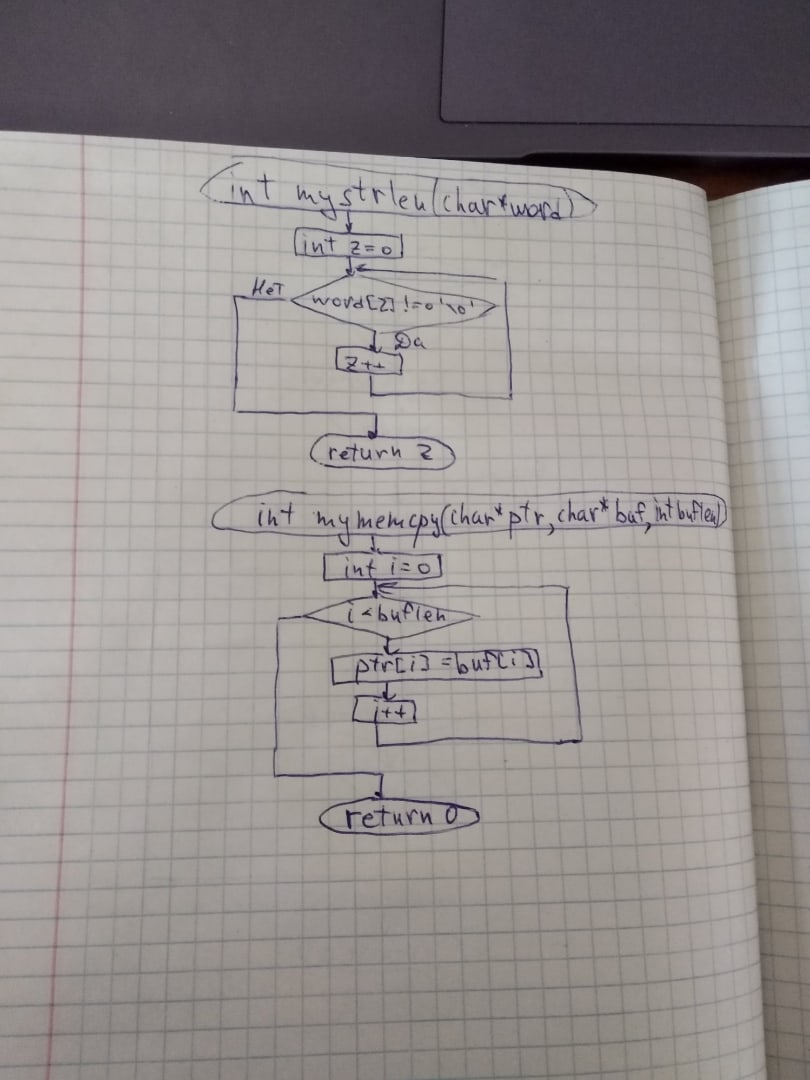 int mystrlen(char*word)
int z=0
Нет
word[z]!=0'\0'
Да
z++
return z
int mymemcpy(char*ptr,char*buf,int buflen)
int i=0
i<buflen
ptr[i]=buf[i]
i++
return 0